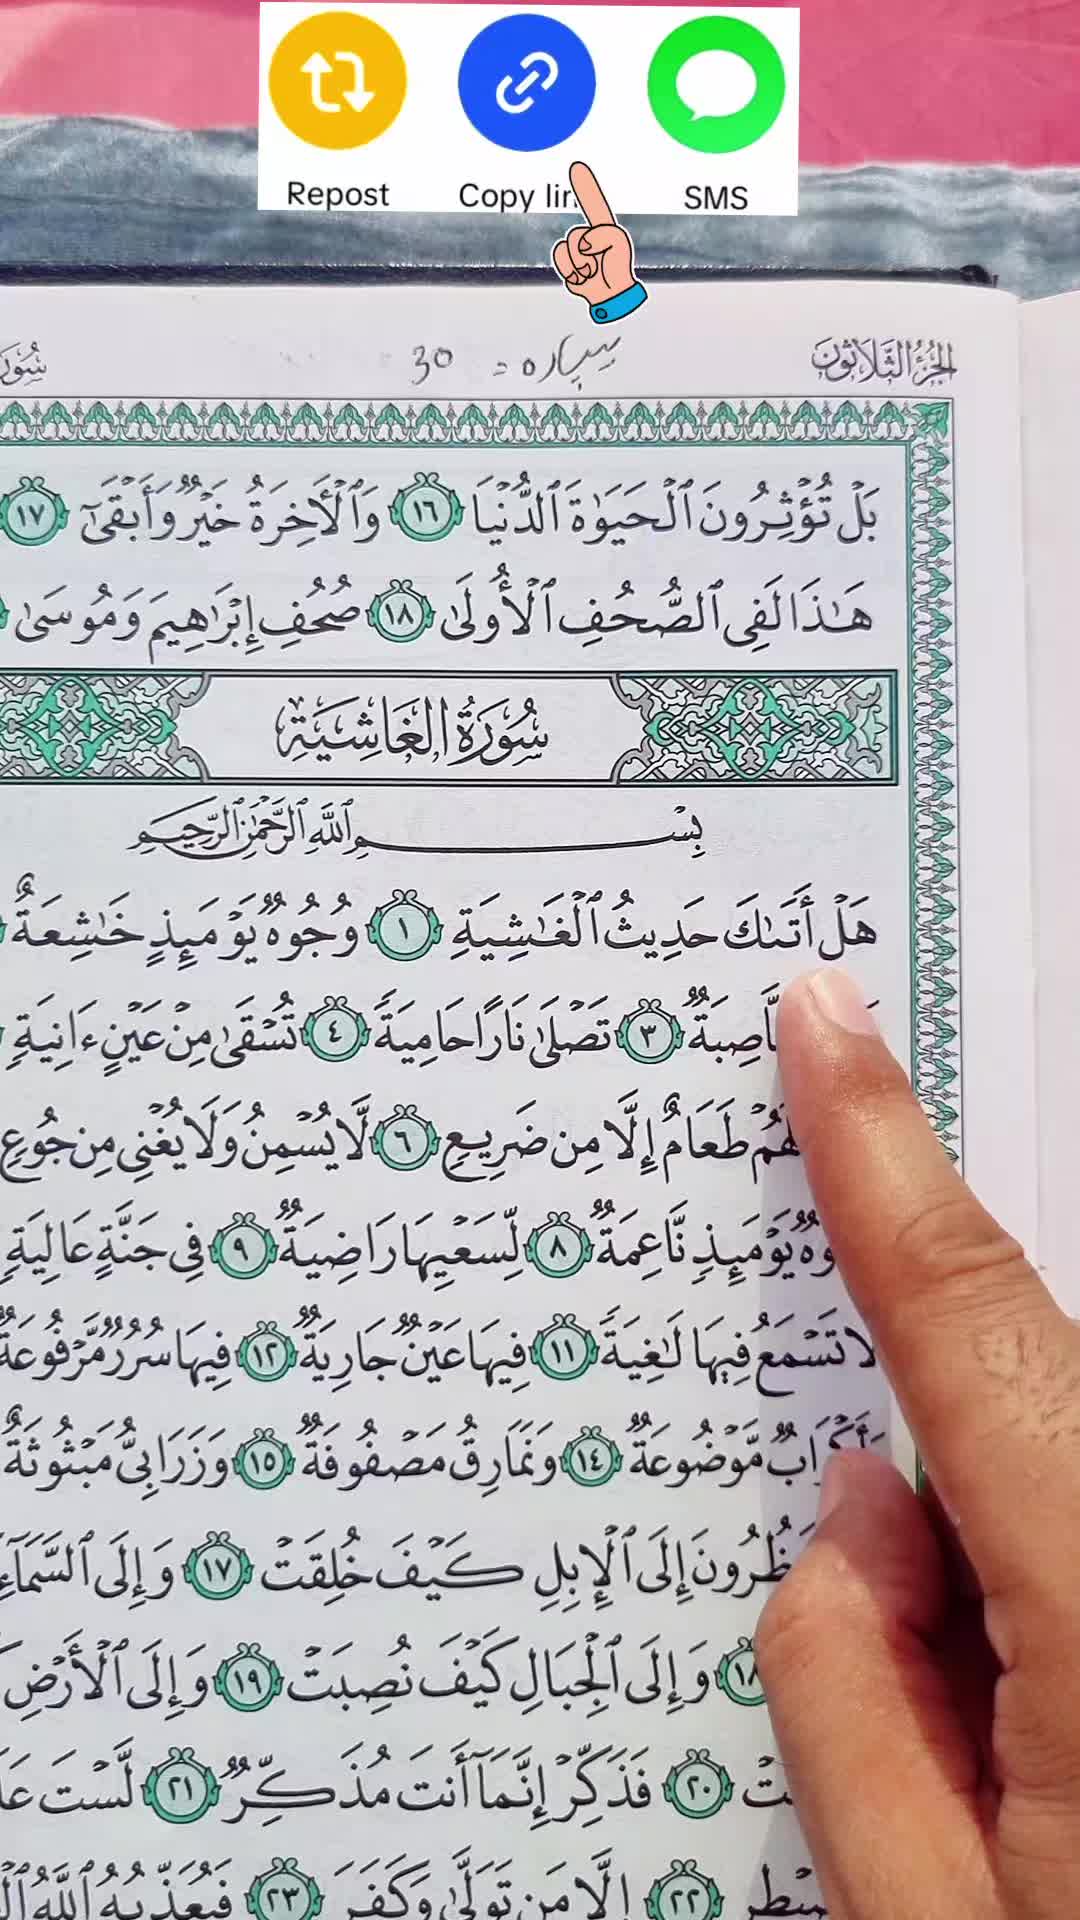 Repost Copy lin SMS
الجزء الثلاثون
سيپاره = 30
بَلْ تُؤْثِرُونَ ٱلْحَيَوٰةَ ٱلدُّنْيَا ١٦ وَٱلْأَخِرَةُ خَيْرٌ وَأَبْقَىٰٓ ١٧
هَٰذَا لَفِى ٱلصُّحُفِ ٱلْأُولَىٰ ١٨ صُحُفِ إِبْرَٰهِيمَ وَمُوسَىٰ
سُورَةُ الغَاشِيَةِ
بِسْمِ ٱللَّهِ ٱلرَّحْمَٰنِ ٱلرَّحِيمِ
هَلْ أَتَىٰكَ حَدِيثُ ٱلْغَٰشِيَةِ ١ وُجُوهٌ يَوْمَئِذٍ خَٰشِعَةٌ
نَّاصِبَةٌ ٣ تَصْلَىٰ نَارًا حَامِيَةً ٤ تُسْقَىٰ مِنْ عَيْنٍ ءَانِيَةٍ
لَهُمْ طَعَامٌ إِلَّا مِن ضَرِيعٍ ٦ لَّا يُسْمِنُ وَلَا يُغْنِى مِن جُوعٍ
وُجُوهٌ يَوْمَئِذٍ نَّاعِمَةٌ ٨ لِّسَعْيِهَا رَاضِيَةٌ ٩ فِى جَنَّةٍ عَالِيَةٍ
لَّا تَسْمَعُ فِيهَا لَٰغِيَةً ١١ فِيهَا عَيْنٌ جَارِيَةٌ ١٢ فِيهَا سُرُرٌ مَّرْفُوعَةٌ
وَأَكْوَابٌ مَّوْضُوعَةٌ ١٤ وَنَمَارِقُ مَصْفُوفَةٌ ١٥ وَزَرَابِىُّ مَبْثُوثَةٌ
يَنظُرُونَ إِلَى ٱلْإِبِلِ كَيْفَ خُلِقَتْ ١٧ وَإِلَى ٱلسَّمَآءِ
١٨ وَإِلَى ٱلْجِبَالِ كَيْفَ نُصِبَتْ ١٩ وَإِلَى ٱلْأَرْضِ
٢٠ فَذَكِّرْ إِنَّمَآ أَنتَ مُذَكِّرٌ ٢١ لَّسْتَ
٢٢ إِلَّا مَن تَوَلَّىٰ وَكَفَرَ ٢٣ فَيُعَذِّبُهُ ٱللَّهُ